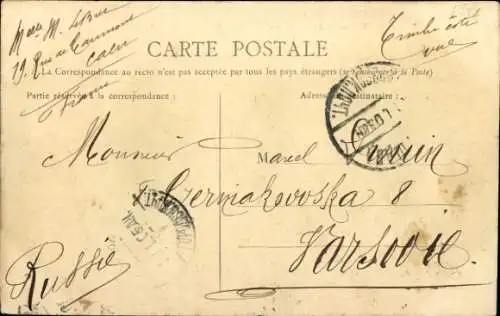 Melle M. Lebrec
19, Rue de Caumont
Caen
France
Timbre côté
vue
CARTE POSTALE
La Correspondance au recto n'est pas acceptée par tous les pays étrangers (se renseigner à la Poste)
Partie réservée à la correspondance :
Adresse du destinataire :
Monsieur Marcel
Czerniakovoska 8
Varsovie
Russie